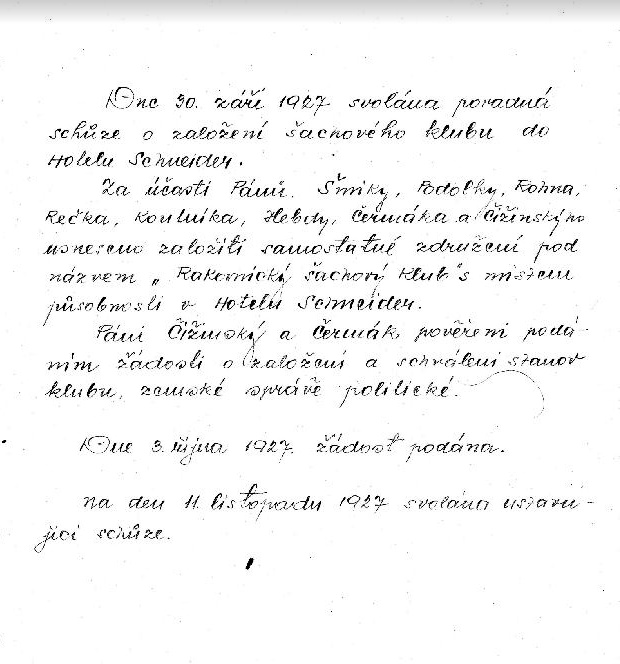 Dne 30. září 1927 svolána poradná
schůze o založení šachového klubu do
Hotelu Schneider.
Za účasti Pánů. Šmíky, Podolky, Kohna,
Rečka, Koutníka, Hebdy, Čermáka a Čižinského
usneseno založiti samostatné združení pod
názvem „Rakovnický šachový klub" s místem
působnosti v Hotelu Schneider.
Páni Čižinský a Čermák pověřeni podá-
ním žádosti o založení a schválení stanov
klubu, zemské správě politické.
Dne 3. října 1927 žádost podána.
na den 11. listopadu 1927 svolána ustavu-
jící schůze.